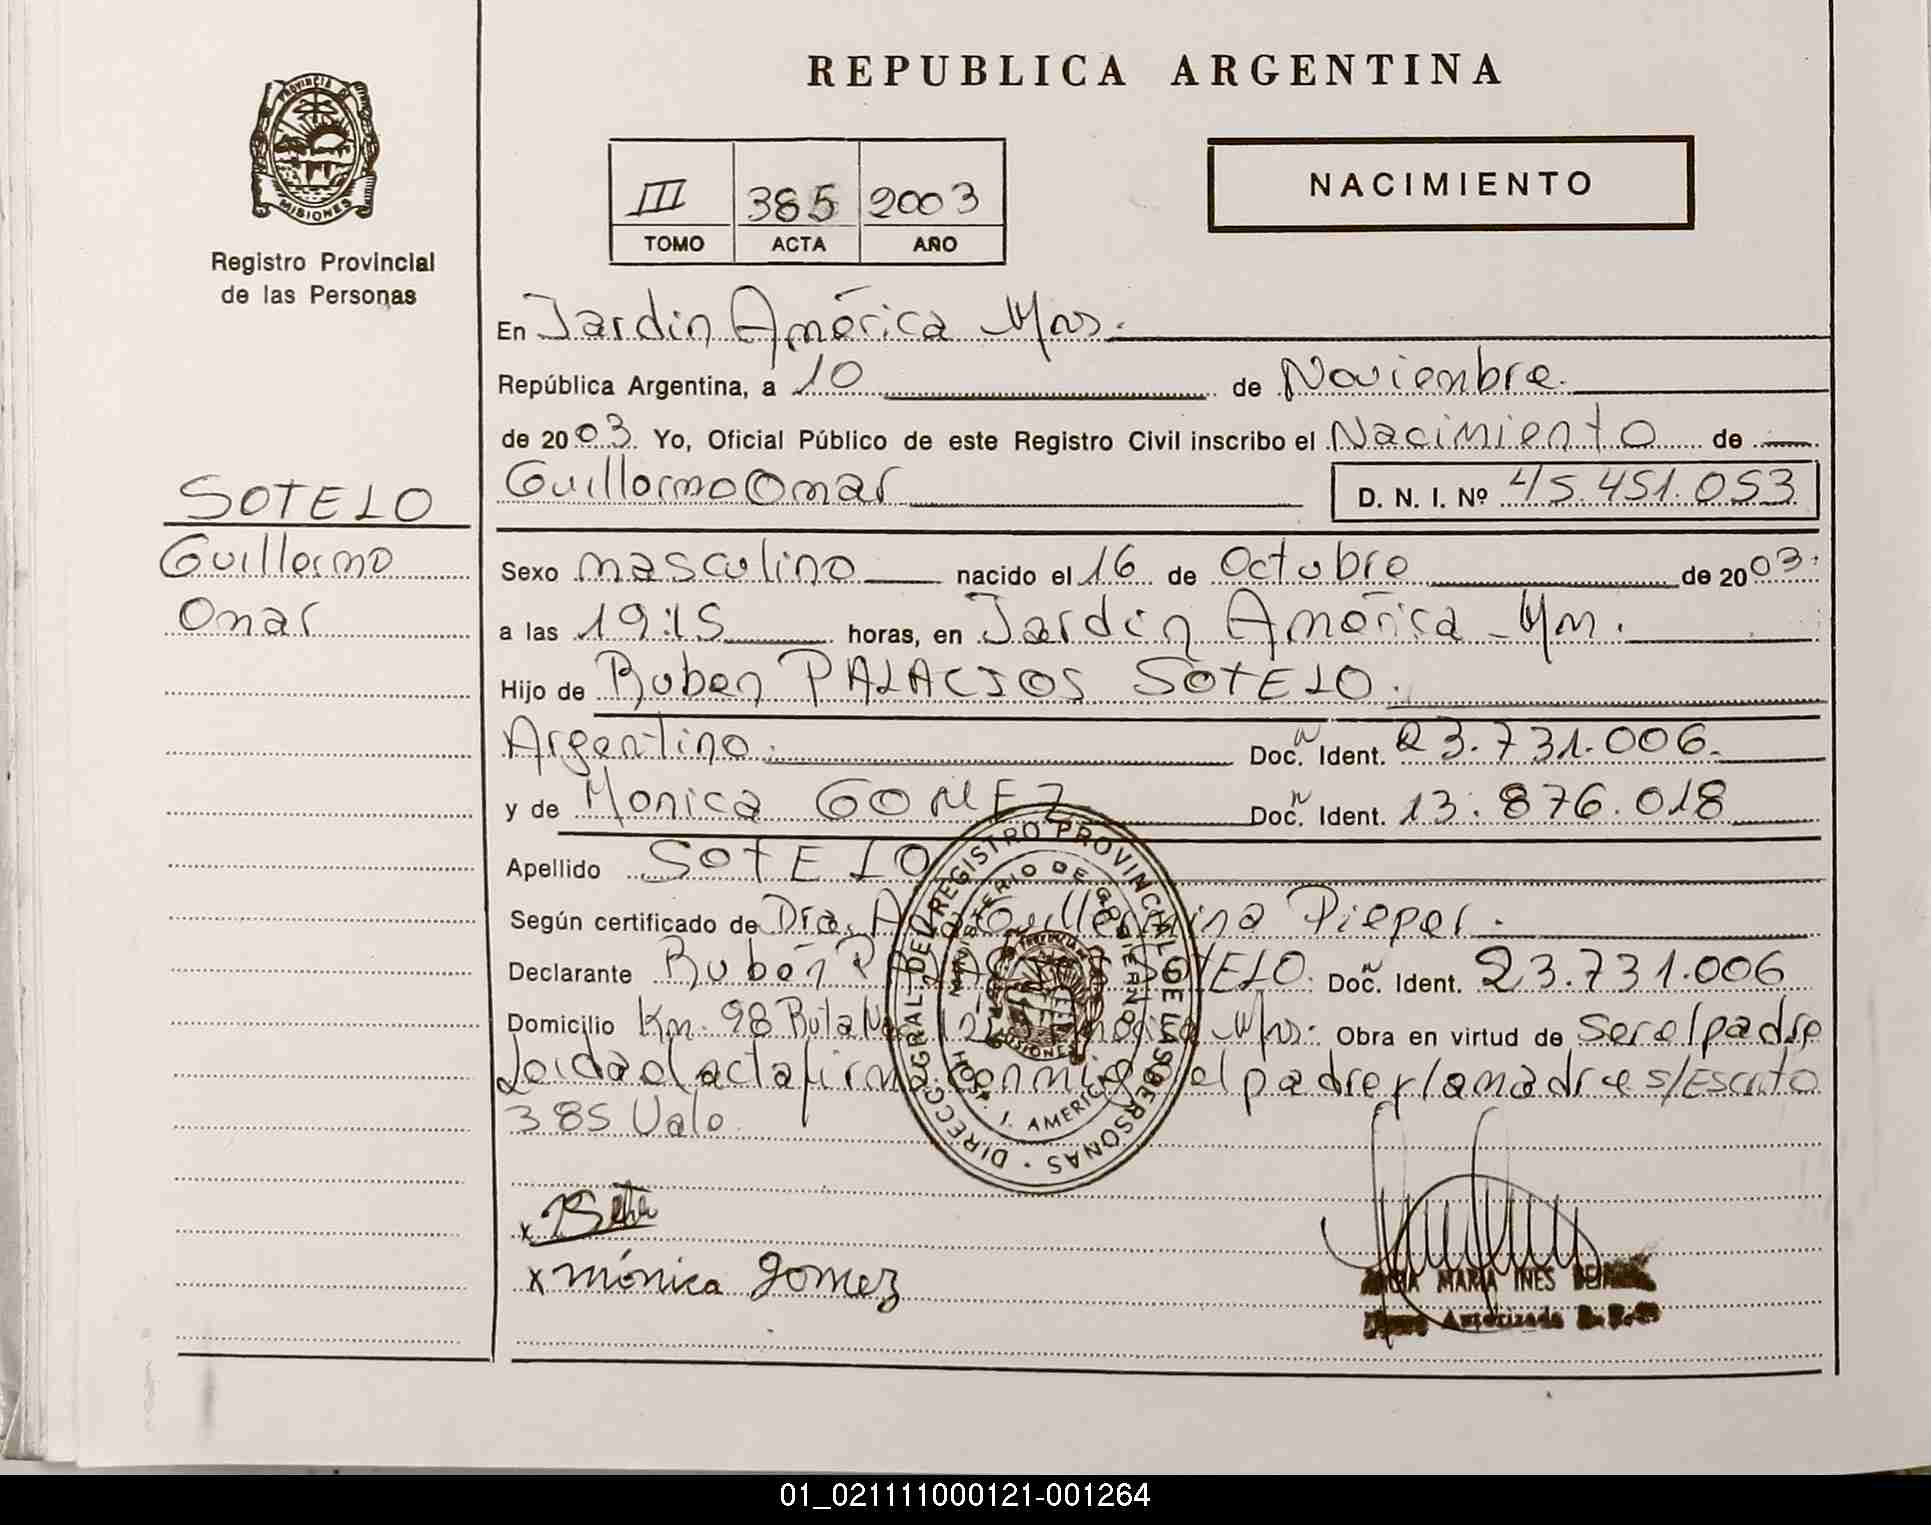 REPUBLICA ARGENTINA
PROVINCIA DE
MISIONES
Registro Provincial
de las Personas
III 385 2003
TOMO ACTA AÑO
NACIMIENTO
En Jardin América Mns.
República Argentina, a 10 de Noviembre.
de 2003 Yo, Oficial Público de este Registro Civil inscribo el Nacimiento de
Guillermo Omar D. N. I. Nº 45.451.053
SOTELO
Guillermo
Omar
Sexo masculino nacido el 16 de Octubre de 2003.
a las 19:15 horas, en Jardin América Mn.
Hijo de Ruben PALACIOS SOTELO.
Argentino. Doc. Ident. 23.731.006.
y de Monica GOMEZ Doc. Ident. 13.876.018
Apellido SOTELO
Según certificado de Dra. Guillermina Pieper.
Declarante Rubén SOTELO. Doc. Ident. 23.731.006
Domicilio Km. 98 Ruta Mns. Obra en virtud de ser el padre
Leida el acta firma conmigo el padre y la madre s/Escrito
385 Vale
DIRECC. GRAL. DEL REGISTRO PROVINCIAL DE LAS PERSONAS
MINISTERIO DE GOBIERNO
HOSP. J. AMERICA
MISIONES
x
x mónica gomez
MARIA INES
Autorizada
01_021111000121-001264